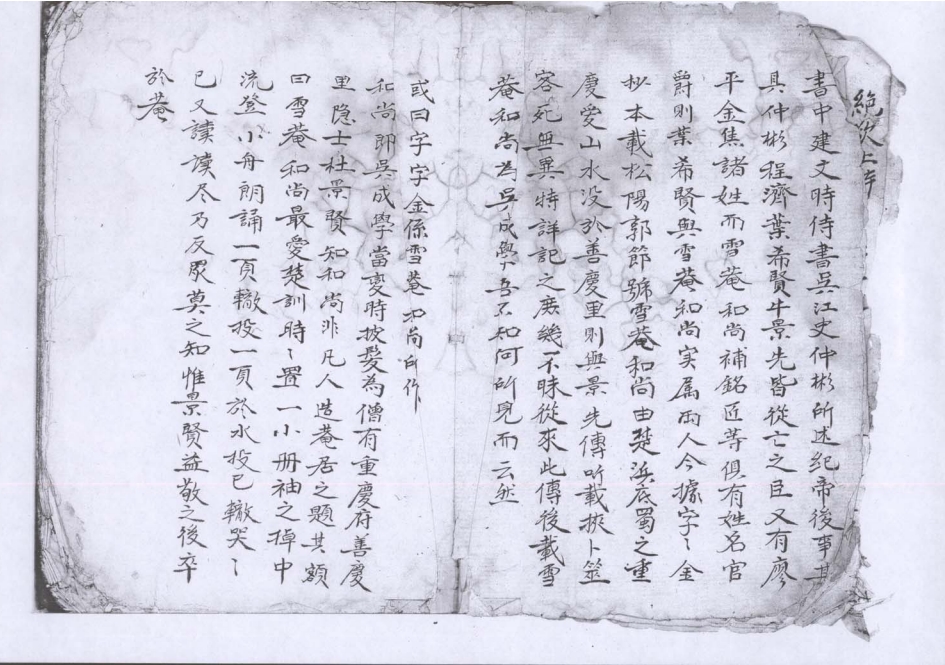 書中建文時侍書吳江史仲彬所述紀帝後事其
具仲彬程濟葉希賢牛景先皆從亡之臣又有廖
平金焦諸姓而雪菴和尚補鍋匠等俱有姓名官
爵則葉希賢與雪菴和尚实属兩人今據字〻金
抄本載松陽郭節號雪菴和尚由楚浜底蜀之重
慶愛山水没於善慶里則與景先傳所載挾卜筮
客死無異特詳記之庶幾不昧從來此傳後載雪
菴和尚為吳成學吾不知何所見而云然
或曰字字金係雪菴和尚所作
和尚即吳成學當變時披髮為僧有重慶府善慶
里隐士杜景賢知和尚非凡人造菴居之題其額
曰雪菴和尚最愛楚訓時〻置一小册袖之掉中
流登小舟朗誦一頁轍投一頁於水投已轍哭〻
已又讀读尽乃反眾莫之知惟景賢益敬之後卒
於菴